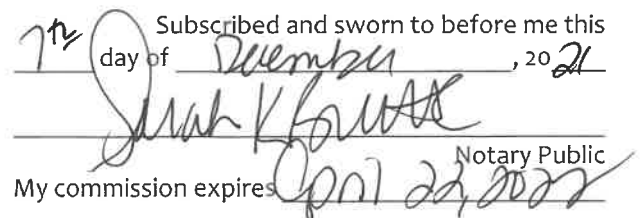 Subscribed and sworn to before me this
7th day of December, 2021
Sarah K
Notary Public
My commission expires April 22, 2022